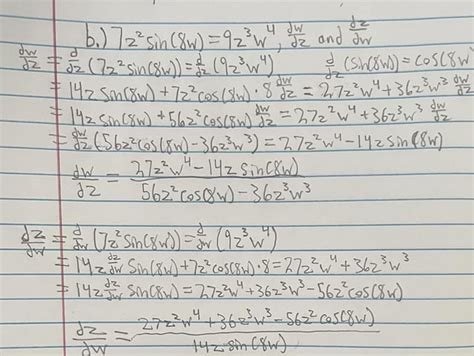 b.) 7z² sin(8w) = 9z³w⁴, dw/dz and dz/dw
dw/dz = d/dz (7z² sin(8w)) = d/dz (9z³w⁴) d/z (sin(8w)) = cos(8w)
= 14z sin(8w) + 7z² cos(8w) · 8 dw/dz = 27z²w⁴ + 36z³w³ dw/dz
= 14z sin(8w) + 56z² cos(8w) dw/dz = 27z²w⁴ + 36z³w³ dw/dz
= dw/dz (56z² cos(8w) - 36z³w³) = 27z²w⁴ - 14z sin(8w)
dw/dz = 27z²w⁴ - 14z sin(8w) / 56z² cos(8w) - 36z³w³
dz/dw = d/dw (7z² sin(8w)) = d/dw (9z³w⁴)
= 14z dz/dw sin(8w) + 7z² cos(8w) · 8 = 27z²w⁴ + 36z³w³
= 14z dz/dw sin(8w) = 27z²w⁴ + 36z³w³ - 56z² cos(8w)
dz/dw = 27z²w⁴ + 36z³w³ - 56z² cos(8w) / 14z sin(8w)